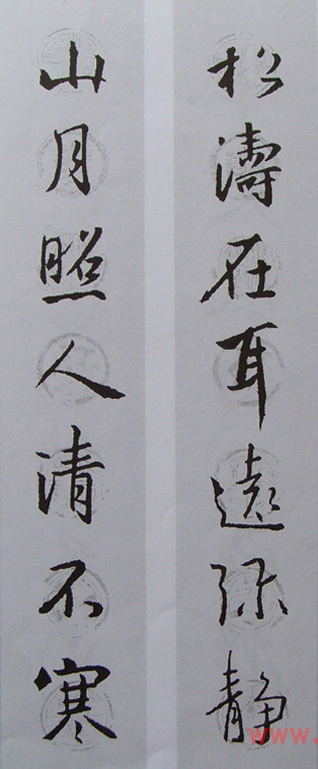 松濤在耳遠弥静
山月照人清不寒
www.